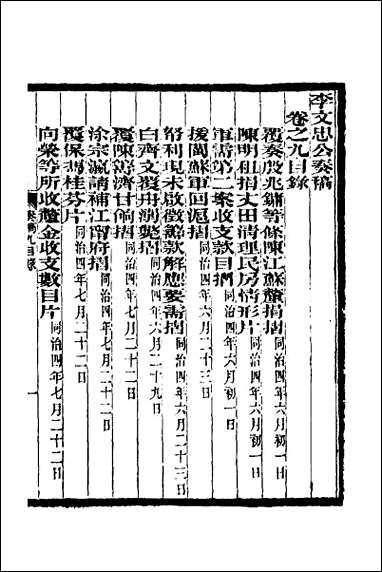 李文忠公奏稿
卷之九目錄
覆奏殷兆鏞等條陳江蘇釐捐摺同治四年六月初一日
陳明租捐丈田清理民房情形片同治四年六月初一日
軍需第二案收支款目摺同治四年六月初一日
援閩蘇軍回滬摺同治四年六月二十三日
幣利現未啟徵籌款解應要需摺同治四年六月二十三日
白齊文覆舟溺斃摺同治四年六月二十九日
覆陳籌濟甘餉摺同治四年七月二十二日
涂宗瀛請補江甯府摺同治四年七月二十二日
覆保馮桂芬片同治四年七月二十二日
向榮等所收釐金收支數目片同治四年七月二十二日
奏稿九目錄
一